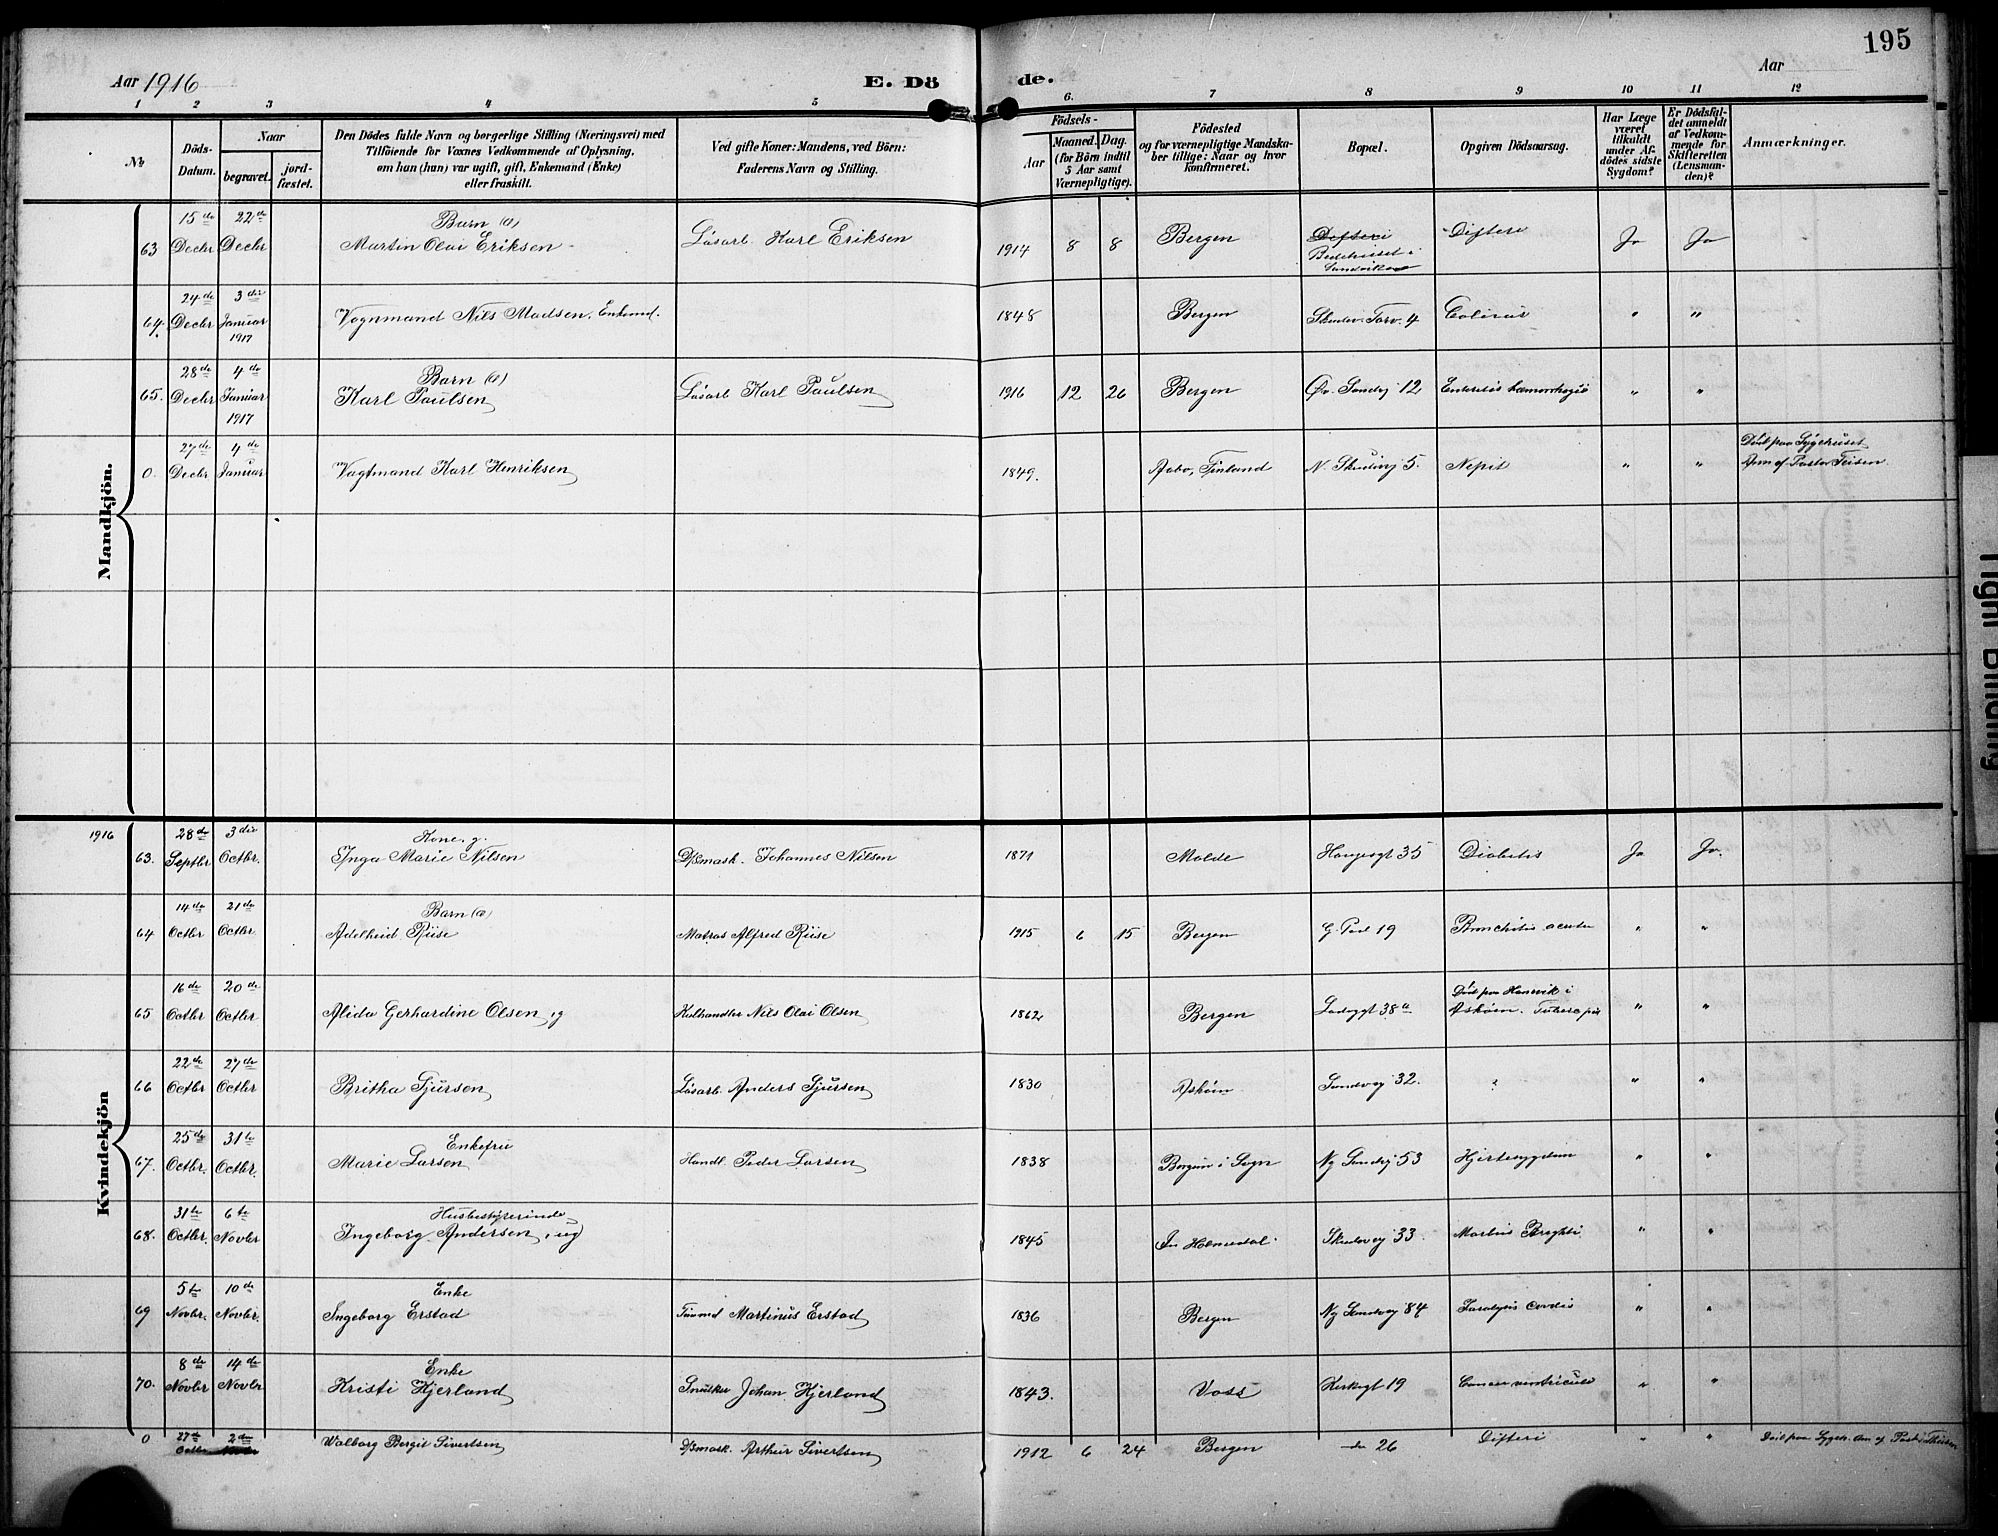 195
Aar 1916
E. Dö de.
Aar
1 2 3 4 5 6. 7 8 9 10 11 12
No
Döds-Datum.
Naar
begravet.
jord-fæstet.
Den Dödes fulde Navn og borgerlige Stilling (Næringsvei) med
Tilföiende for Voxnes Vedkommende af Oplysning,
om han (hun) var ugift, gift, Enkemand (Enke)
eller fraskilt.
Ved gifte Koner: Mandens, ved Börn:
Faderens Navn og Stilling.
Födsels-
Aar
Maaned. Dag.
(for Börn indtil
5 Aar samt
Værnepligtige).
Födested
og for værnepligtige Mandska-
ber tillige: Naar og hvor
konfirmeret.
Bopæl.
Opgiven Dödsaarsag.
Har Læge
været
tilkaldt
under Af-
dödes sidste
Sygdom?
Er Dödsfal-
det anmeldt
af Vedkom-
mende for
Skifteretten
(Lensman-
den)?
Anmærkninger.
Mandkjön.
15de 22de Barn (a)
63 Decbr Decbr Martin Olai Eriksen Løsarb. Karl Eriksen 1914 8 8 Bergen Difteri Difteri Ja Ja
Bedehuset i
Sandviken
24de 3die
64. Decbr Januar Vognmand Nils Madsen, Enkemd. 1848 Bergen Skudev. Torv. 4 " "
1917
28de 4de Barn (a)
65. Decbr Januar Karl Paulsen Løsarb Karl Paulsen 1916 12 26 Bergen Øv. Sandvj 12 " "
1917
27de 4de Død paa Sygehuset
0. Decbr Januar Vagtmand Karl Henriksen 1849. Aabo, Finland N. Skudevj 5. " " Anm af Pastor
Kvindekjön
1916 28de 3die Kone, g.
63. Septbr Octbr. Inga Marie Nilsen Johannes Nilsen 1871 Molde 35 Diabetes Ja Ja.
14de 21de Barn (a)
64 Octbr Octbr. Adelheid Riise Matros Alfred Riise 1915 6 15 Bergen 19 Bronchitis acuta " "
16de 20de Død paa Hanevik i
65 Octbr Octbr Alida Gerhardine Olsen, g Kulhandler Nils Olai Olsen 1862 Bergen 38a Askøen. " "
22de 27de
66 Octbr Octbr Britha Sjursen Løsarb Anders Sjursen 1830 Askøen Sandvvj 32. " " "
25de 31te Enkefru
67. Octbr. Octbr. Marie Larsen Handl. Peder Larsen 1838 i Sogn Ny Sandvj 53 Hjertesygdom " "
31te 6te Husbestyrerinde
68. Octbr. Novbr Ingeborg Andersen, ug 1845 Holmedal Skudevvj 33. Morbus Brighti " "
5te 10de Enke
69 Novbr. Novbr. Ingeborg Erstad Martinus Erstad 1836 Bergen Ny Sandvvj 84 Paralysis cordis " "
8de 14de Enke
70. Novbr Novbr Kristi Hjerland Snedker Johan Hjerland 1843. Voss 19 Cancer ventriculi " "
27de 2den
0 Octbr Novbr Valborg Bergit Sivertsen Arthur Sivertsen 1912 6 24 Bergen do 26 Difteri " " Død paa Sygeh. Anm af Past.